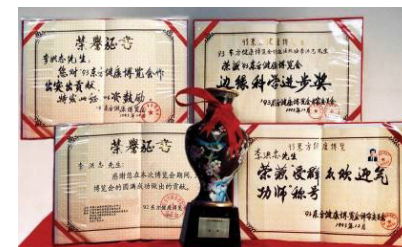 荣誉证书
李洪志先生:
您对'93东方健康博览会作
出突出贡献,
特发此证,以资鼓励
1993年12月
93东方健康博览会
荣获'93东方健康博览会
边缘科学进步奖
'93东方健康博览会
1993年12月
荣誉证书
李洪志先生:
感谢您在本次博览会期间,
博览会的圆满成功做出的贡献。
'92东方健康博览会
93东方健康博览
李洪志先生
荣获受群众欢迎气
功师"称号
93东方健康博览会
1993年12月